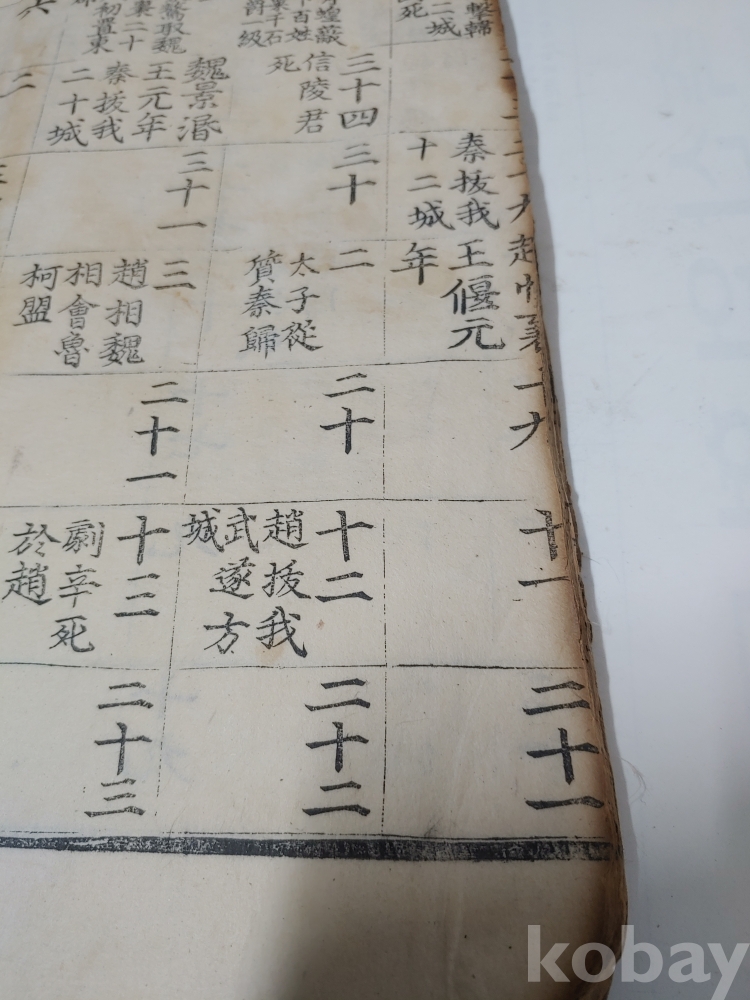 擊歸
二城
死
秦拔我
十二城
趙悼襄
王偃元
年
十九
十一
二十一
蝗蔽
百姓
粟千石
爵一級
三十四
信陵君
死
三十
二
太子從
質秦歸
二十
十二
趙拔我
武遂方
城
二十二
驁取魏
二十
初置東
魏景湣
王元年
秦拔我
二十城
三十一
三
趙相魏
相會魯
柯盟
二十一
十三
劇辛死
於趙
二十三
六
二
kobay